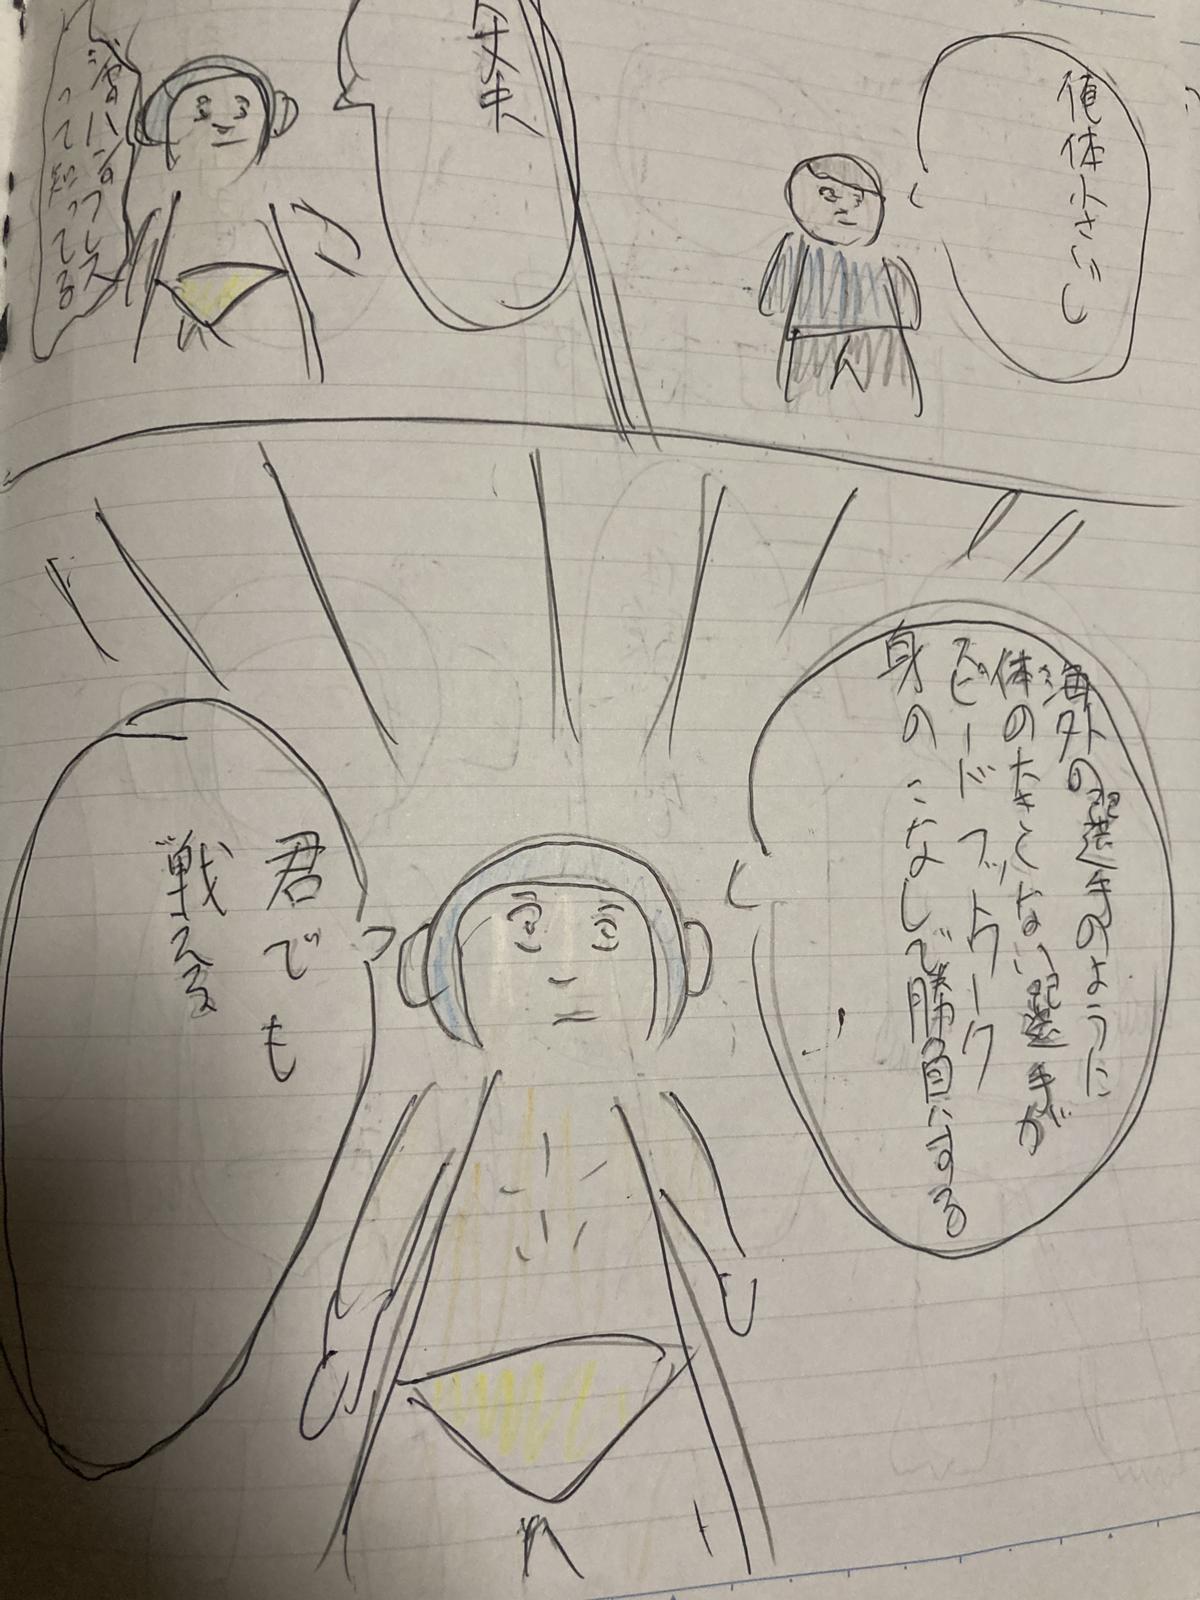 俺体小さいし
丈夫
って知ってる
海外の選手のように
体の大きくない選手が
スピード フットワーク
身のこなしで勝負する
君でも
戦える